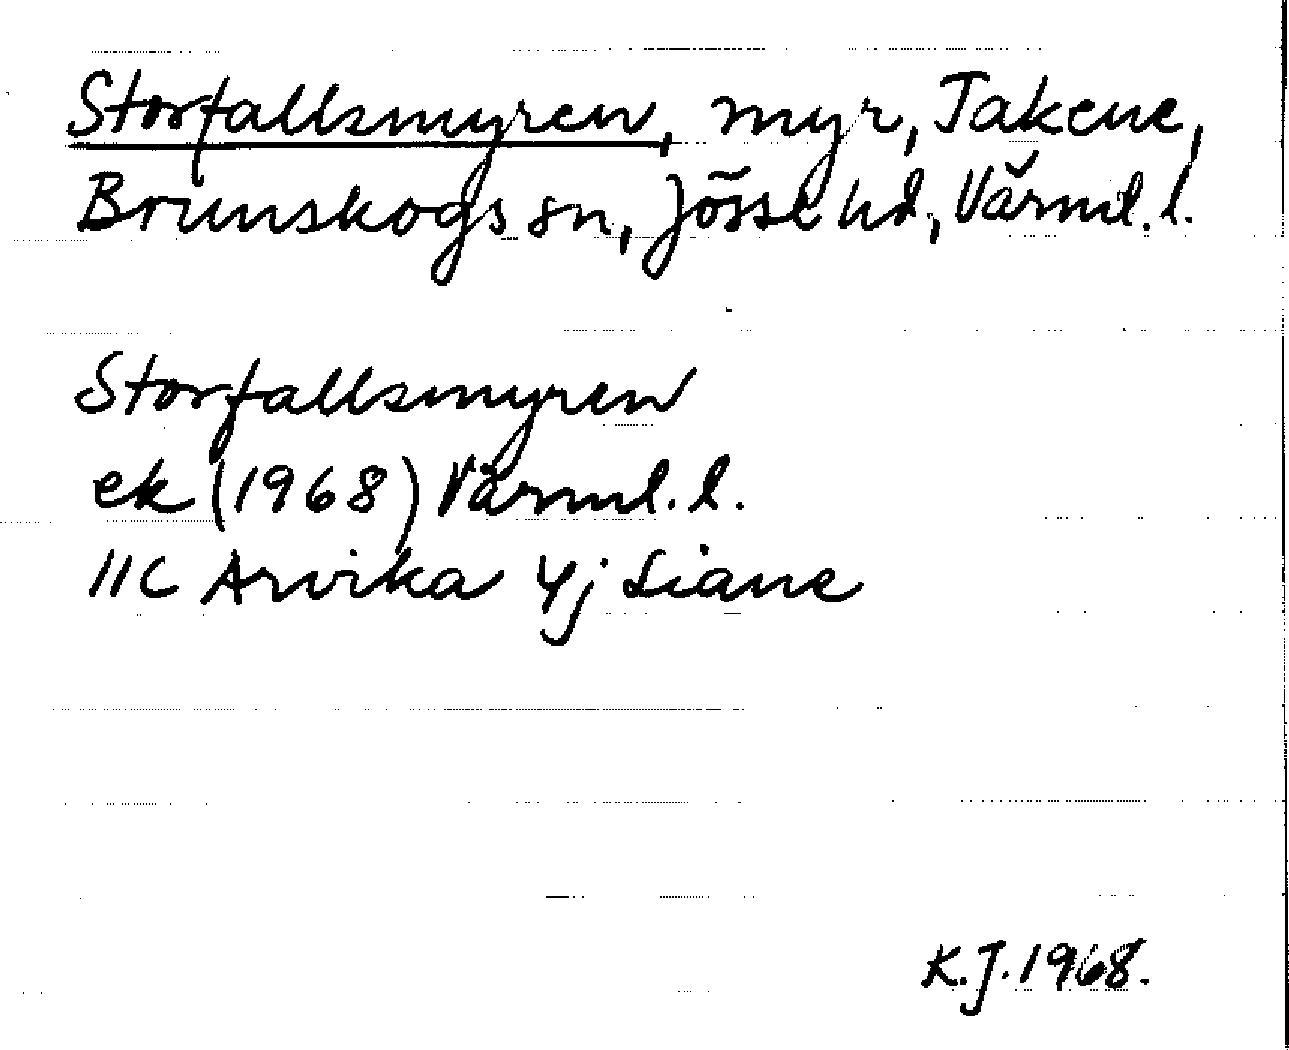 Storfallsmyren, myr, Takene,
Brunskogs sn, Jösse hd, Värml. l.
Storfallsmyren
ek (1968) Värml. l.
11C Arvika 4j Liane
K.J. 1968.